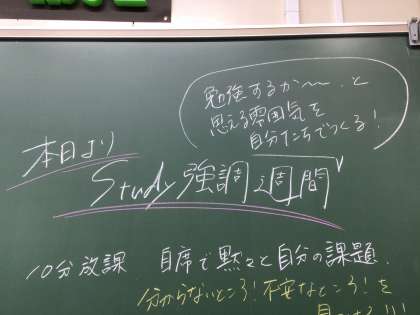 本日より
勉強するか〜、と
思える雰囲気を
自分たちでつくる!
Study強調週間
10分放課 自席で黙々と自分の課題、
分からないところ!不安なところ!を